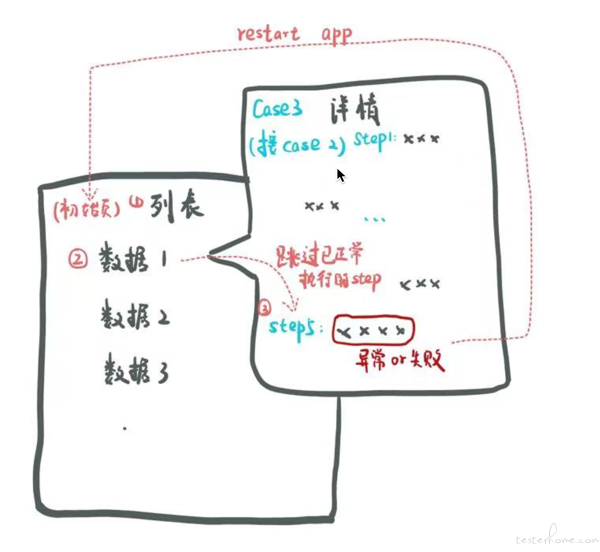 restart app
Case3 详情
(接case 2) Step1: xxx
xxx
...
(初始页) ① 列表
② 数据 1
跳过已正常
执行的step
xxx
数据 2
③
step5: xxxx
异常or失败
数据 3
testerhome.com